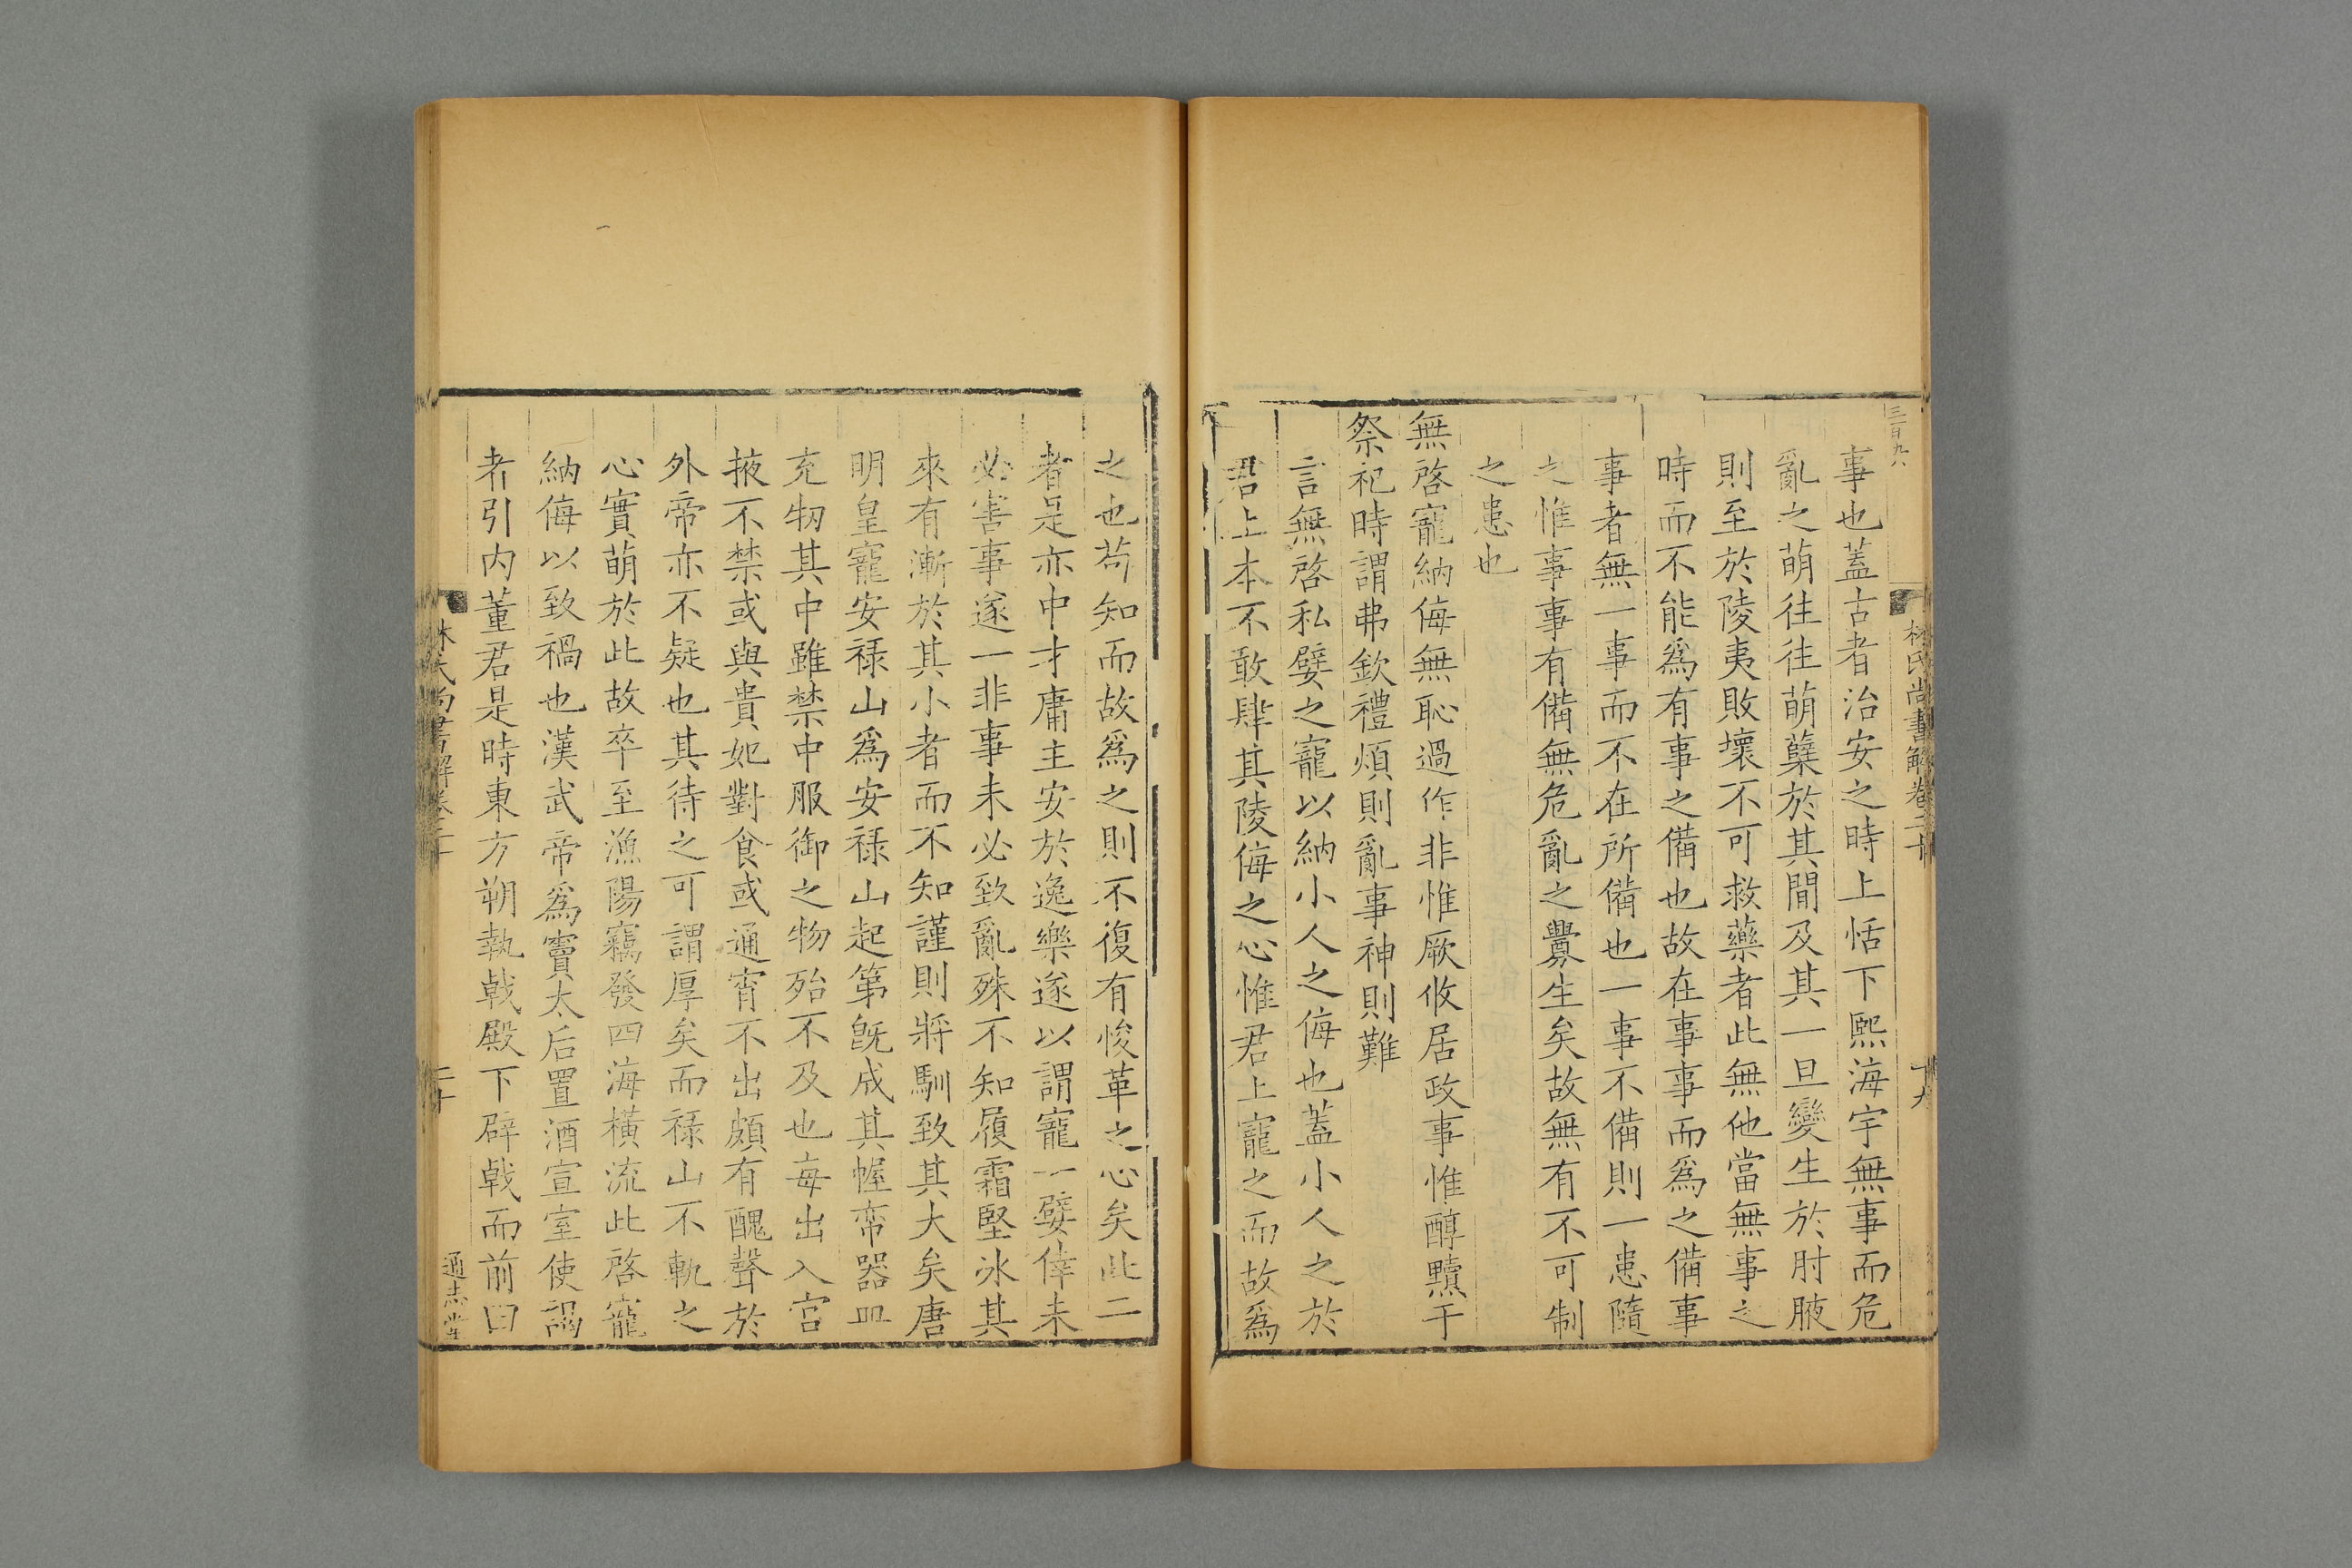 三百九八
林氏尚書解卷二十
十九
事也蓋古者治安之時上恬下熙海宇無事而危
亂之萌往往萌櫱於其間及其一旦變生於肘腋
則至於陵夷敗壞不可救藥者此無他當無事之
時而不能爲有事之備也故在事事而爲之備事
事者無一事而不在所備也一事不備則一患隨
之惟事事有備無危亂之釁生矣故無有不可制
之患也
無啓寵納侮無恥過作非惟厥攸居政事惟醇黷于
祭祀時謂弗欽禮煩則亂事神則難
言無啓私嬖之寵以納小人之侮也蓋小人之於
君上本不敢肆其陵侮之心惟君上寵之而故爲
之也苟知而故爲之則不復有悛革之心矣此二
者是亦中才庸主安於逸樂遂以謂寵一嬖倖未
必害事遂一非事未必致亂殊不知履霜堅冰其
來有漸於其小者而不知謹則將馴致其大矣唐
明皇寵安祿山爲安祿山起第旣成其幄帟器皿
充牣其中雖禁中服御之物殆不及也每出入宫
掖不禁或與貴妃對食或通宵不出頗有醜聲於
外帝亦不疑也其待之可謂厚矣而祿山不軌之
心實萌於此故卒至漁陽竊發四海橫流此啓寵
納侮以致禍也漢武帝爲竇太后置酒宣室使謁
者引内董君是時東方朔執戟殿下辟戟而前曰
林氏尚書解卷二十
二十
通志堂